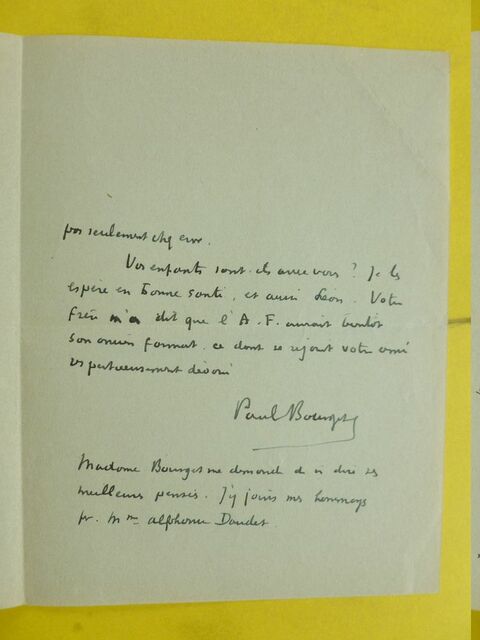 pas seulement chez eux.
Vos enfants sont-ils avec vous ? Je les
espère en bonne santé, et aussi Léon. Votre
frère m'a dit que l'A.F. aurait bientôt
son ancien format, ce dont se réjouit votre ami
respectueusement dévoué
Paul Bourget
Madame Bourget me demande de vous dire ses
meilleures pensées. J'y joins mes hommages
pr. Mme Alphonse Daudet.